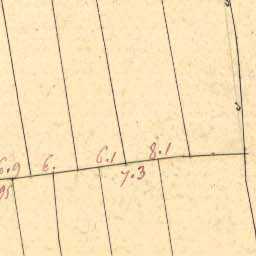 6.9 6. 6.1 8.1
7.3